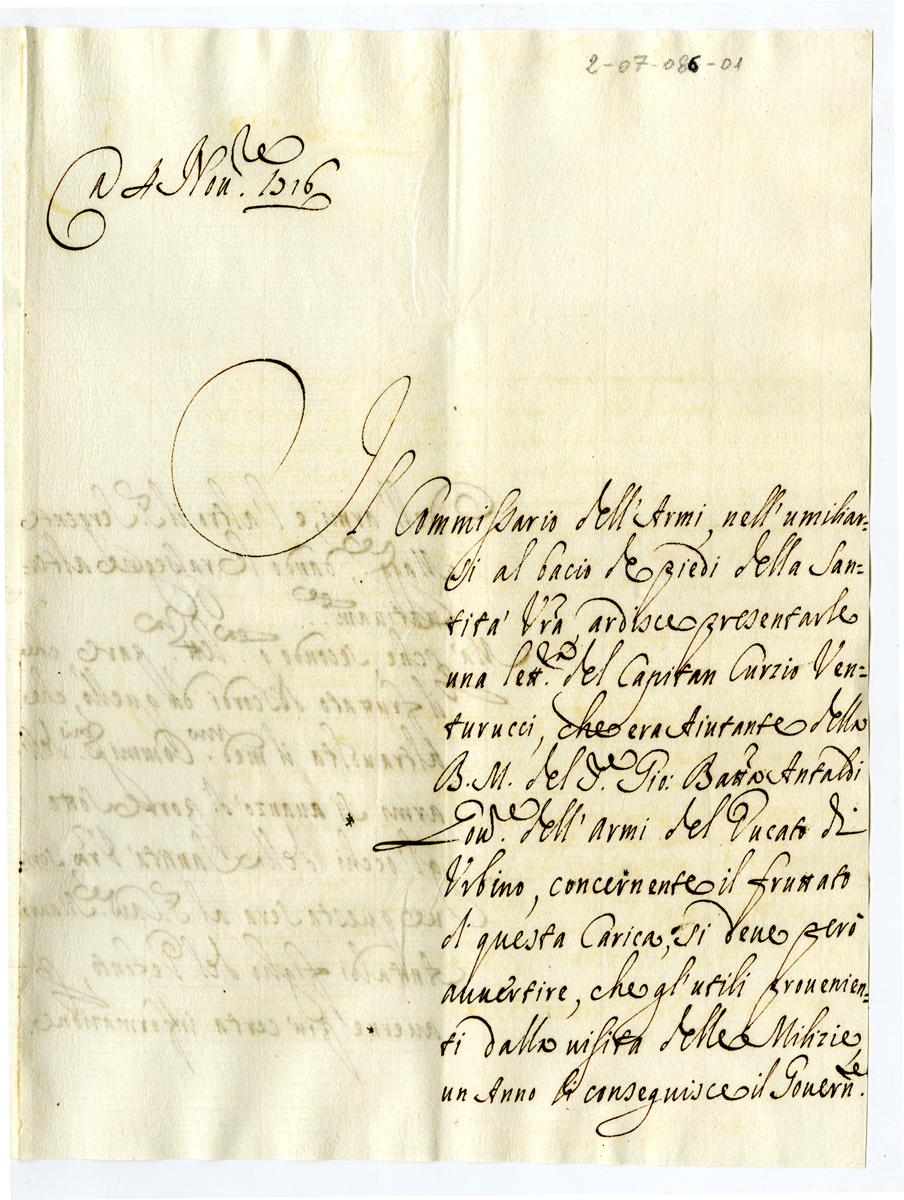 2-07-086-01
A 4 Nov.re 1716
Il Commissario dell'Armi, nell'umiliar=
si al bacio de piedi della San=
tita' Vra, ardisce presentarle
una lett.ra del Capitan Curzio Ven=
turucci, che era Aiutante della
B. M. del Gio: Batta Antaldi
Gov.re dell'armi del Ducato di
Urbino, concernente il fruttato
di questa Carica; si deve però
avvertire, che gl'utili provenien=
ti dalla visita delle Milizie,
un Anno li conseguisce il Govern.re